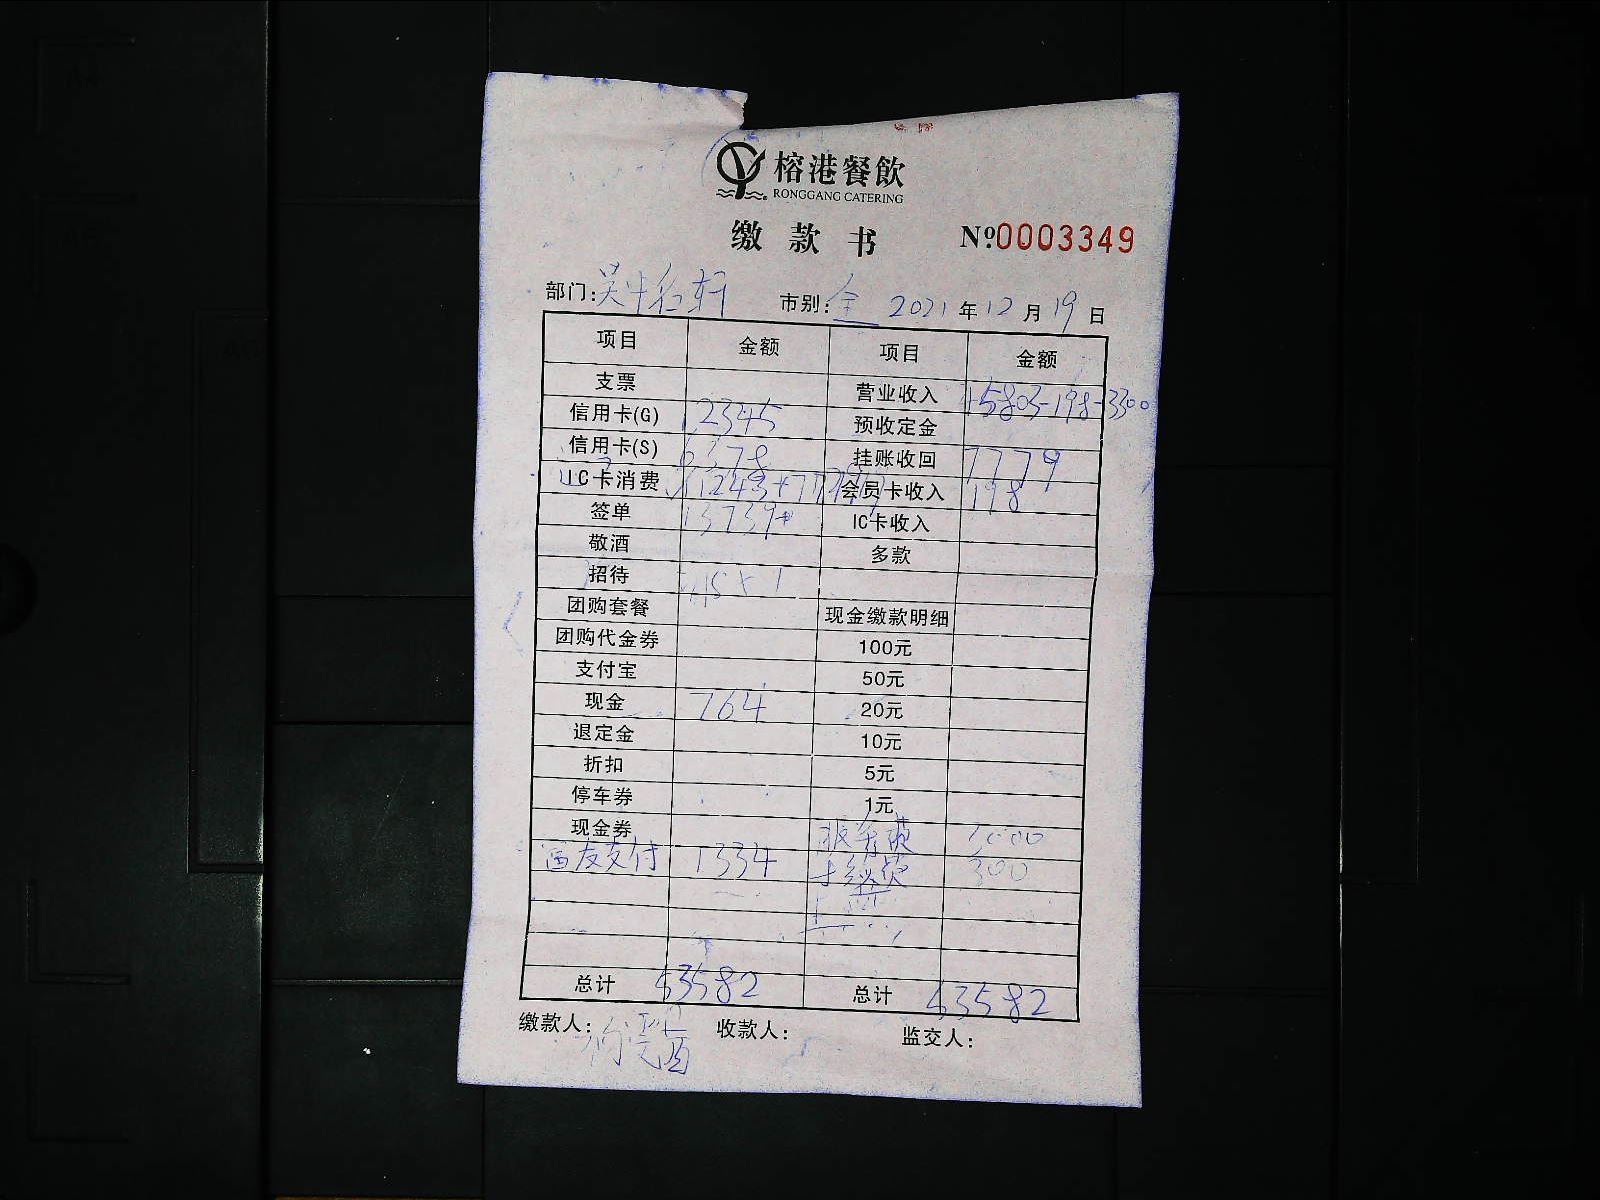 榕港餐飲
RONGGANG CATERING
缴款书 №0003349
部门: 市别:全 2021年12月19日
项目 金额 项目 金额
支票 营业收入 45803-198-3300
信用卡(G) 12345 预收定金
信用卡(S) 6378 挂账收回 7779
IC卡消费 会员卡收入 198
签单 13739 IC卡收入
敬酒 多款
招待
团购套餐 现金缴款明细
团购代金券 100元
支付宝 50元
现金 764 20元
退定金 10元
折扣 5元
停车券 1元
现金券 服务费 3000
支付 1334 手续费 300
总计 53582 总计 53582
缴款人: 收款人: 监交人: